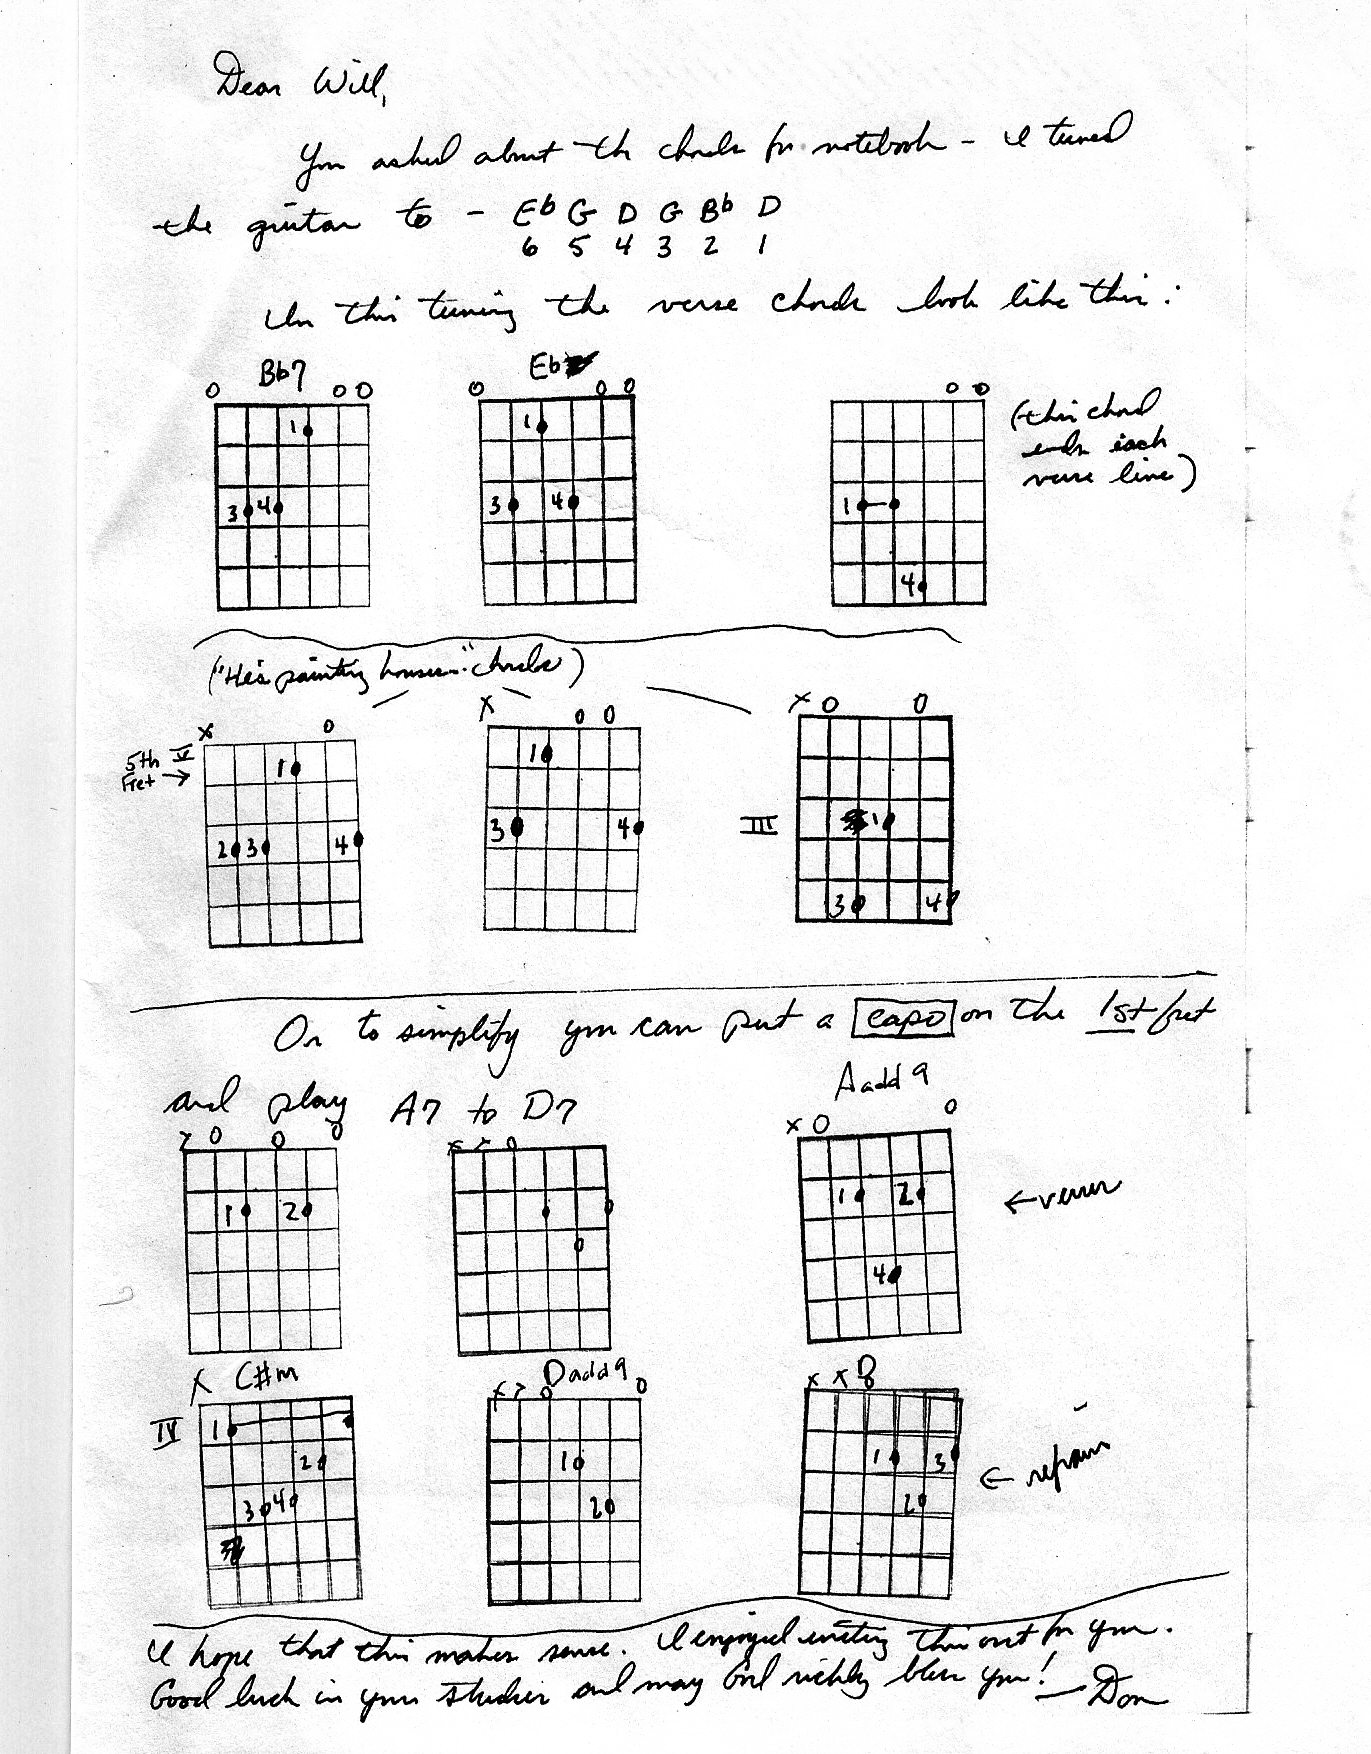 Dear Will,
You asked about the chords for notebook - I tuned
the guitar to - Eb G D G Bb D
6 5 4 3 2 1
In this tuning the verse chords look like this:
Bb7 Eb
O O O O O O O O
(this chord
ends each
verse line)
1 1
3 4 3 4 1
4
("He's painting houses..." chords)
X O X O O X O O
5th V
Fret →
1 1
2 3 4 3 4 III 1
3 4
Or to simplify you can put a capo on the 1st fret
and play A7 to D7 Aadd9
X O O O X X O X O O
1 2 1 2 ← verses
4
X C#m Dadd9
X X O O X X O
IV 1
2 1 1 3 ← refrain
3 4 2 2
I hope that this makes sense. I enjoyed writing this out for you.
Good luck in your studies and may God richly bless you! — Don